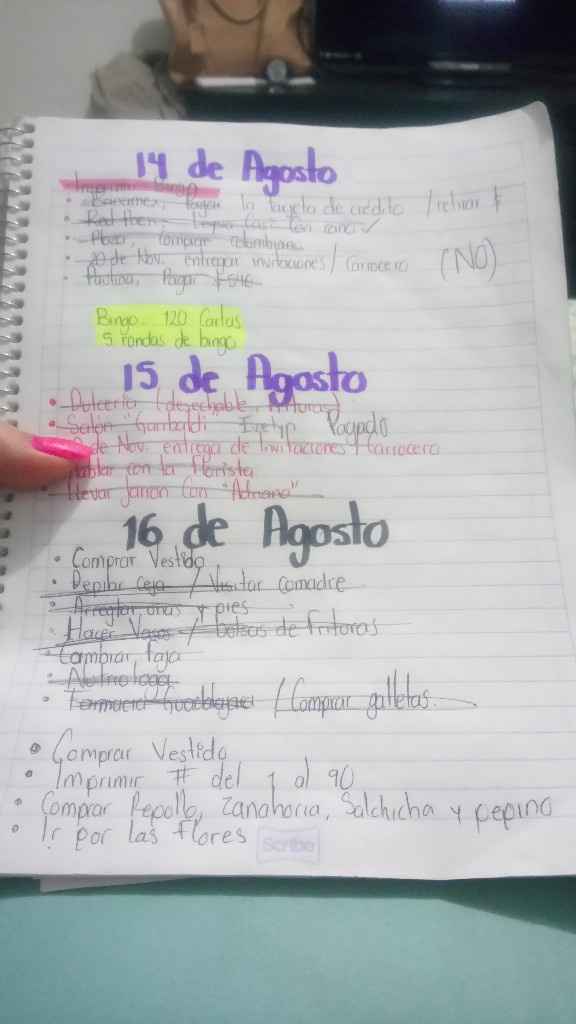 14 de Agosto
Imprimir Bingo
• Banamex, Pagar la tarjeta de crédito / retirar $
• Red Uber,
• Plaza, comprar colombiana
• 20 de Nov. entregar invitaciones / Carrocero (NO)
• Paulina, Pagar $
Bingo 120 Cartas
5 rondas de bingo
15 de Agosto
• Dulcería (desechable, frituras)
• Salon "Garibaldi" Evelyn Pagado
de Nov. entrega de Invitaciones / Carrocero
con la florista
• llevar Jarron con "Adriana"
16 de Agosto
• Comprar Vestido
• Depilar ceja / Visitar comadre
• Arreglar uñas y pies
• Hacer Vasos / bolsas de frituras
• Cambiar faja
• Nutriologa
• Farmacia Guadalajara / Comprar galletas.
• Comprar Vestido
• Imprimir # del 1 al 90
• Comprar Repollo, Zanahoria, Salchicha y pepino
• Ir por las flores
Scribe